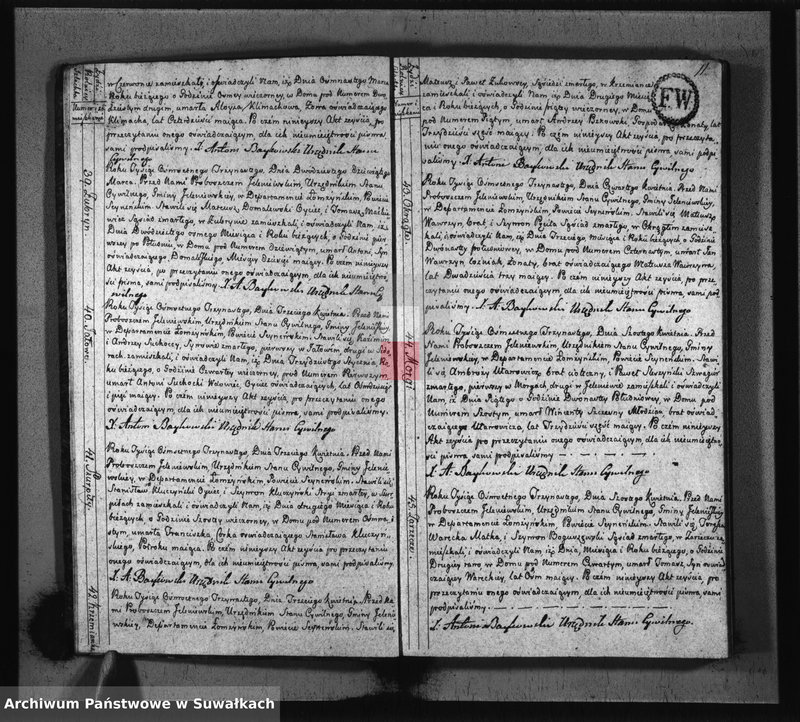 w Czerwonie zamieszkałey i oświadczyli Nam, iż Dnia Ośmnastego Marca
Roku bieżącego o Godzinie Osmey wieczorney, w Domu pod Numerem Dwu
dziestym drugim, umarła Aloyza Klimachowa, Żona oświadczaiącego
Klimacha, lat maiąca. Po czem ninieyszy Akt zeyścia, po
przeczytaniu onego oświadczaiącym, dla ich nieumieiętności pisma
sami podpisaliśmy. X. Antoni Baykowski Urzędnik Stanu
Cywilnego
39. Zubryn.
Roku Tysiąc Ośmsetnego Trzynastego, Dnia Dwudziestego dziewiątego
Marca. Przed Nami Proboszczem Jeleniewskim, Urzędnikiem Stanu
Cywilnego, Gminy Jeleniewskiey, w Departamencie Łomżyńskim, Powiecie
Seyneńskim. Stawili się Mateusz Domalewski Oyciec, i Tomasz
Sąsiad zmarłego, w Zubrynie zamieszkali, i oświadczyli Nam, iż
Dnia Dwódziestego osmego Miesiąca i Roku bieżących, o Godzinie pier
wszey po Południu, w Domu pod Numerem Dziewiątym, umarł Antoni, Syn
oświadczaiącego Domalewskiego Miesięcy dziewięć maiący. Po czem ninieyszy
Akt zeyścia, po przeczytaniu onego oświadczaiącym, dla ich nieumieiętno
ści pisma, sami podpisaliśmy. X. A. Baykowski Urzędnik Stanu Cy
wilnego
40.
Roku Tysiąc Ośmsetnego Trzynastego, Dnia Trzeciego Kwietnia. Przed Nami
Proboszczem Jeleniewskim, Urzędnikiem Stanu Cywilnego, Gminy Jeleniewskiey,
w Departamencie Łomżyńskim, Powiecie Seyneńskim. Stawili się Kazimierz
i Andrzey Suchoccy, Synowie zmarłego, pierwszy w drugi w
zamieszkali, i oświadczyli Nam, iż Dnia Trzydziestego Stycznia, Ro
ku bieżącego, o Godzinie Czwartey wieczorney, pod Numerem Pierwszym
umarł Antoni Suchocki Wdowiec Oyciec oświadczaiących, lat
i pięć maiący. Po czem ninieyszy Akt zeyścia, po przeczytaniu onego
oświadczaiącym, dla ich nieumieiętności pisma, sami podpisaliśmy.
X. Antoni Baykowski Urzędnik Stanu Cywilnego
41.
Roku Tysiąc Ośmsetnego Trzynastego, Dnia Trzeciego Kwietnia. Przed Nami
Proboszczem Jeleniewskim, Urzędnikiem Stanu Cywilnego, Gminy Jelenie
wskiey, w Departamencie Łomżyńskim, Powiecie Seyneńskim. Stawili się
Stanisław Kluczyński Oyciec, i Szymon Kluczyński Stryi zmarłey, w
zamieszkali i oświadczyli Nam, iż Dnia drugiego Miesiąca i Roku
bieżących, o Godzinie Szóstey wieczorney, w Domu pod Numerem Osmna
stym, umarła Franciszka, Córka oświadczaiącego Stanisława Kluczyń
skiego, Półroku maiąca. Po czem ninieyszy Akt zeyścia po przeczytaniu
onego oświadczaiącym, dla ich nieumieiętności pisma, sami podpisaliśmy
X. A. Baykowski Urzędnik Stanu Cywilnego
42. Krzemianka
Roku Tysiąc Ośmsetnego Trzynastego, Dnia Trzeciego Kwietnia. Przed Na
mi Proboszczem Jeleniewskim, Urzędnikiem Stanu Cywilnego, Gminy Jelenie
wskiey, w Departamencie Łomżyńskim, Powiecie Seyneńskim. Stawili się
11.
FW
Mateusz i Paweł Żukowscy, Sąsiedzi zmarłego, w Krzemiance
zamieszkali i oświadczyli Nam, iż Dnia Drugiego Miesią
ca i Roku bieżących, o Godzinie piątey wieczorney, w Domu
pod Numerem Piątym, umarł Andrzey Gospodarz Żonaty, lat
Trzydzieści sześć maiący. Po czem ninieyszy Akt zeyścia, po przeczyta
niu onego oświadczaiącym, dla ich nieumieiętności pisma, sami podpi
saliśmy. X. Antoni Baykowski Urzędnik Stanu Cywilnego.
43. Okrągłe
Roku Tysiąc Ośmsetnego Trzynastego, Dnia Czwartego Kwietnia. Przed Nami
Proboszczem Jeleniewskim, Urzędnikiem Stanu Cywilnego, Gminy Jeleniewskiey,
w Departamencie Łomżyńskim, Powiecie Seyneńskim. Stawili się Mateusz
Wawrzyn, brat i Szymon Sąsiad zmarłego, w Okrągłem zamiesz
kali, i oświadczyli Nam, iż Dnia Trzeciego, miesiąca i Roku bieżących, o Godzinie
Dwónastey południowey, w Domu pod Numerem Czternastym, umarł Jan
Wawrzyn Żonaty, brat oświadczaiącego Mateusza Wawrzyna,
lat Dwadzieścia trzy maiący. Po czem ninieyszy Akt zeyścia, po prze
czytaniu onego oświadczaiącym, dla ich nieumieiętności pisma, sami pod
pisaliśmy. X. A. Baykowski Urzędnik Stanu Cywilnego
44. Morgi
Roku Tysiąc Ośmsetnego Trzynastego, Dnia Szóstego Kwietnia. Przed
Nami Proboszczem Jeleniewskim, Urzędnikiem Stanu Cywilnego, Gminy
Jeleniewskiey, w Departamencie Łomżyńskim, Powiecie Seyneńskim. Stawi
li się Ambroży Uranowicz, brat i Paweł
zmarłego, pierwszy w Morgach drugi w Jeleniewie zamieszkali i oświadczyli
Nam, iż Dnia Piątego o Godzinie Dwónastey Południowey, w Domu pod
Numerem Szóstym, umarł Wincenty Szczęsny Młodzian, brat oświad
czaiącego Uranowicza, lat Trzydzieści sześć maiący. Po czem ninieyszy
Akt zeyścia po przeczytaniu onego oświadczaiącym, dla ich nieumieiętno
ści pisma, sami podpisaliśmy
X. A. Baykowski Urzędnik Stanu Cywilnego
45.
Roku Tysiąc Ośmsetnego Trzynastego, Dnia Szóstego Kwietnia. Przed Nami
Proboszczem Jeleniewskim, Urzędnikiem Stanu Cywilnego, Gminy Jeleniewskiey
w Departamencie Łomżyńskim, Powiecie Seyneńskim. Stawili się
Warecka Matka, i Szymon Boguszewski Sąsiad zmarłego, w
zamieszkali i oświadczyli Nam, iż Dnia, Miesiąca i Roku bieżącego, o Godzinie
Drugiey rano w Domu pod Numerem Czwartym, umarł Tomasz, Syn oświad
czaiącey Wareckiey, lat Ośm maiący. Po czem ninieyszy Akt zeyścia, po
przeczytaniu onego oświadczaiącym, dla ich nieumieiętności pisma, sami
podpisaliśmy.
X. Antoni Baykowski Urzędnik Stanu Cywilnego.
Archiwum Państwowe w Suwałkach